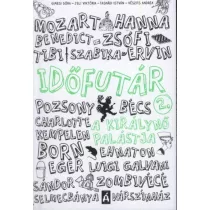 GIMESI DÓRA - JELI VIKTÓRIA - TASNÁDI ISTVÁN - VÉSZITS ANDREA
MOZART HANNA
BENEDICT ZSÓFI
TIBI SZABIKA-ERVIN
IDŐFUTÁR
POZSONY BÉCS 2.
CHARLOTTE A KIRÁLYNŐ
KEMPELEN PALÁSTJA
BORN EHNATON
EGER LUIGI GALVANI
SÁNDOR ZOMBIVÉCÉ
SELMECBÁNYA VÁRSZÍNHÁZ